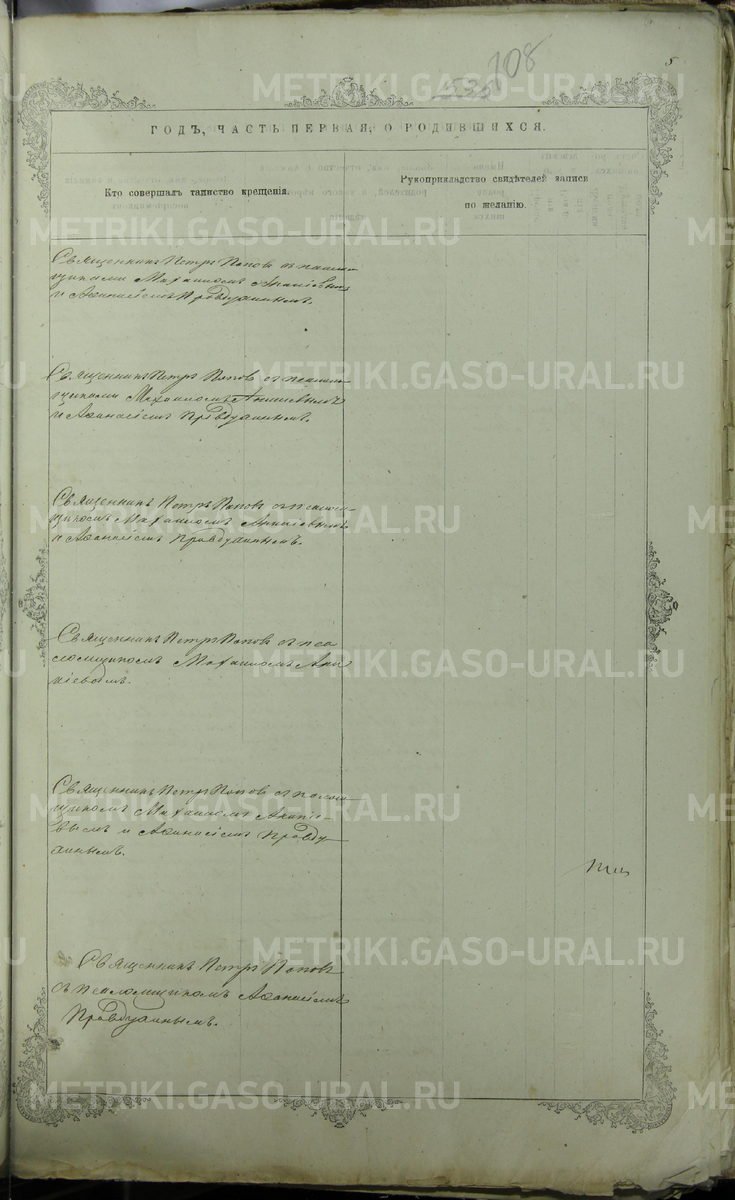 108
535
5
ГОДЪ, ЧАСТЬ ПЕРВАЯ, О РОДИВШИХСЯ.
Кто совершалъ таинство крещенія.
Рукоприкладство свидѣтелей записи
по желанію.
Священникъ Петръ Поповъ съ псалом
щиками Михаиломъ
и Аѳанасіемъ Правдухинымъ.
Священникъ Петръ Поповъ съ псалом
щиками Михаиломъ
и Аѳанасіемъ Правдухинымъ.
Священникъ Петръ Поповъ съ псалом
щикомъ Михаиломъ
и Аѳанасіемъ Правдухинымъ.
Священникъ Петръ Поповъ съ пса
ломщикомъ Михаиломъ Ана
ніевымъ.
Священникъ Петръ Поповъ съ псалом
щикомъ Михаиломъ Ананіе
вымъ и Аѳанасіемъ Правду
хинымъ.
Священникъ Петръ Поповъ
съ псаломщикомъ Аѳанасіемъ
Правдухинымъ.
METRIKI.GASO-URAL.RU